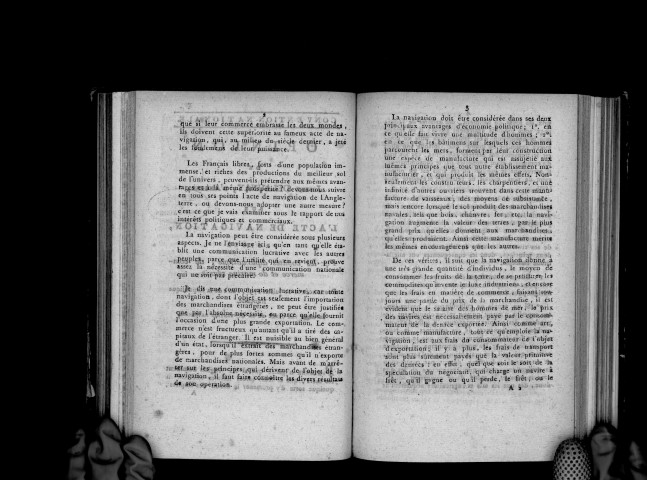 2
que si leur commerce embrasse les deux mondes,
ils doivent cette supériorité au fameux acte de na-
vigation, qui, au milieu du siècle dernier, a jeté
les fondemens de leur puissance.
Les Français libres, forts d'une population im-
mense, et riches des productions du meilleur sol
de l'univers, peuvent-ils prétendre aux mêmes avan-
tages et à la même prospérité? devons-nous suivre
en tous ses points l'acte de navigation de l'Angle-
terre, ou devons-nous adopter une autre mesure?
c'est ce que je vais examiner sous le rapport de nos
intérêts politiques et commerciaux.
La navigation peut être considérée sous plusieurs
aspects. Je ne l'envisage ici, qu'en tant qu'elle éta-
blit une communication lucrative avec les autres
peuples, parce que l'utilité qui en revient, prouve
assez la nécessité d'une communication nationale
qui ne soit pas précaire.
Je dis une communication lucrative, car toute
navigation, dont l'objet est seulement l'importation
des marchandises étrangères, ne peut être justifiée
que par l'absolue nécessité, ou parce qu'elle fournit
l'occasion d'une plus grande exportation. Le com-
merce n'est fructueux qu'autant qu'il a tiré des ca-
pitaux de l'étranger. Il est nuisible au bien général
d'un état, lorsqu'il extrait des marchandises étran-
gères, pour de plus fortes sommes qu'il n'exporte
de marchandises nationales. Mais avant de m'arrê-
ter sur les principes qui dérivent de l'objet de la
navigation, il faut faire connoître les divers résultats
de son opération.
3
La navigation doit être considérée dans ses deux
principaux avantages d'économie politique; 1°. en
ce qu'elle fait vivre une multitude d'hommes; 2°.
en ce que les bâtimens sur lesquels ces hommes
parcourent les mers, forment par leur construction
une espèce de manufacture qui est assujétie aux
mêmes principes que tout autre établissement ma-
nufacturier, et qui produit les mêmes effets. Non-
seulement les constructeurs, les charpentiers, et une
infinité d'autres ouvriers trouvent dans cette manu-
facture de vaisseaux, des moyens de subsistance,
mais encore lorsque le sol produit des marchandises
navales, tels que bois, chanvre, fer, etc. la navi-
gation augmente la valeur des terres, par le plus
grand prix qu'elles donnent aux marchandises,
qu'elles produisent. Ainsi cette manufacture mérite
les mêmes encouragemens que les autres.
De ces vérités, il suit que la navigation donne à
une très-grande quantité d'individus, le moyen de
consommer les fruits de la terre, de se procurer les
commodités qu'invente le luxe industrieux; et encore
que les frais en matière de commerce, faisant tou-
jours une partie du prix de la marchandise, il est
évident que le salaire des hommes de mer, le prix
des navires est nécessairement payé par le consom-
mateur de la denrée exportée. Ainsi comme art,
ou comme manufacture, tout ce qu'emploie la na-
vigation, est aux frais du consommateur de l'objet
d'exportation; il y a plus, les frais de transport
sont plus sûrement payés que la valeur primitive
des denrées: en effet, quel que soit le sort de la
spéculation du négociant, qui charge un navire à
frêt, qu'il gagne ou qu'il perde, le frêt, ou le
A 2